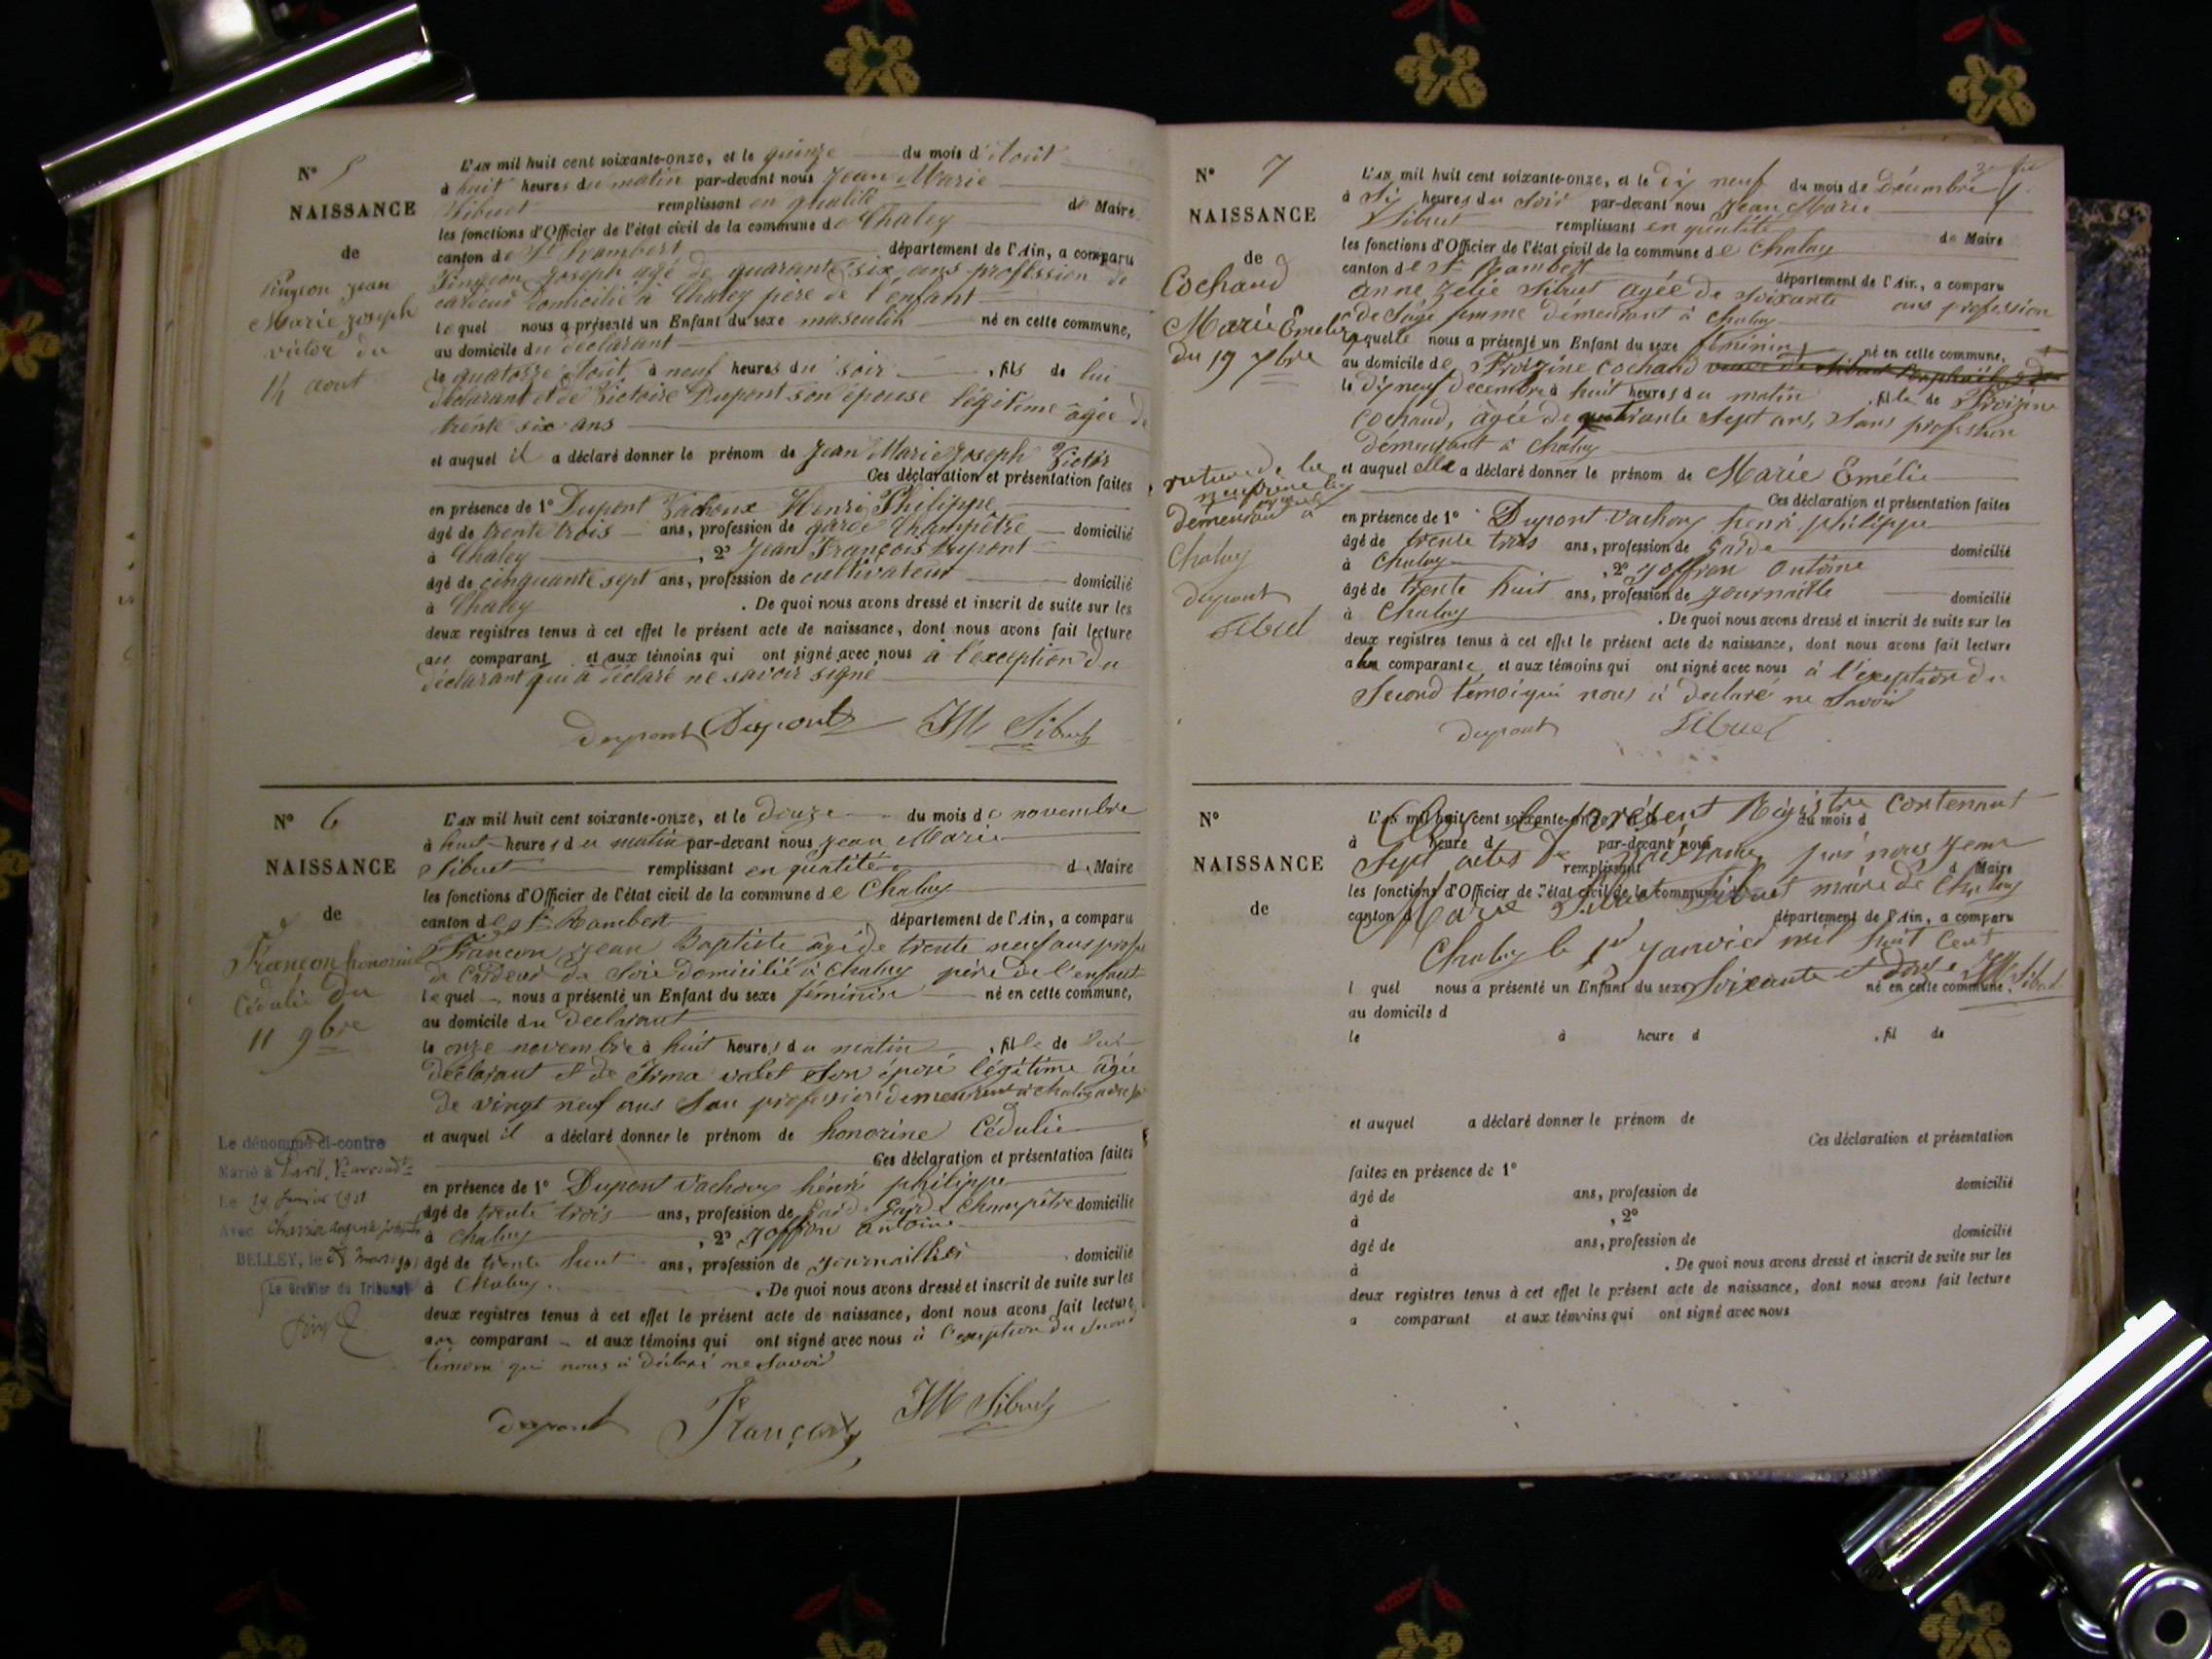 N° 5
NAISSANCE
de
Pingeon Jean
Marie Joseph
victor du
14 aout
L'AN mil huit cent soixante-onze, et le quinze du mois d'Août
à huit heures du matin par-devant nous Jean Marie
Sibuet remplissant en qualité de Maire
les fonctions d'Officier de l'état civil de la commune de Chaley
canton de St Rambert département de l'Ain, a comparu
Pingeon Joseph agé de quarante six ans profession de
cardeur domicilié à Chaley père de l'enfant
lequel nous a présenté un Enfant du sexe masculin né en cette commune,
au domicile du déclarant
le quatorze Août, à neuf heures du soir, fils de lui
déclarant et de Victoire Dupont son épouse légitime âgée de
trente six ans
et auquel il a déclaré donner le prénom de Jean Marie Joseph Victor
Ces déclaration et présentation faites
en présence de 1° Dupont Vachoux Henri Philippe
âgé de trente trois ans, profession de garde Champêtre domicilié
à Chaley, 2° Jean François Dupont
âgé de cinquante sept ans, profession de cultivateur domicilié
à Chaley. De quoi nous avons dressé et inscrit de suite sur les
deux registres tenus à cet effet le présent acte de naissance, dont nous avons fait lecture
au comparant et aux témoins qui ont signé avec nous à l'exception du
déclarant qui à déclaré ne savoir signé
dupont Dupont JM Sibuet
N° 6
NAISSANCE
de
Françon honorine
Cédulie du
11 9bre
L'AN mil huit cent soixante-onze, et le douze du mois de novembre
à huit heures du matin par-devant nous Jean Marie
Sibuet remplissant en qualité d Maire
les fonctions d'Officier de l'état civil de la commune de Chaley
canton de St Rambert département de l'Ain, a comparu
Françon Jean Baptiste âgé de trente neuf ans
de Cardeur de Soie domicilié à Chaley père de l'enfant
lequel nous a présenté un Enfant du sexe féminin né en cette commune,
au domicile du déclarant
le onze novembre à huit heures du matin, fille de lui
déclarant et de Irma valet Son légitime âgée
de vingt neuf ans San profession demeurant à Chaley
et auquel il a déclaré donner le prénom de honorine Cédulie
Ces déclaration et présentation faites
en présence de 1° Dupont Vachoux hénri philippe
âgé de trente trois ans, profession de Garde Champêtre domicilié
à Chaley, 2° Joffron antoine
âgé de trente huit ans, profession de journaillier domicilié
à Chaley. De quoi nous avons dressé et inscrit de suite sur les
deux registres tenus à cet effet le présent acte de naissance, dont nous avons fait lecture
au comparant et aux témoins qui ont signé avec nous à l'exception du second
témoin qui nous à déclaré ne savoir
dupont Françon JM Sibuet
Le dénommé ci-contre
Marié à Paris,
Le Janvier
Avec
BELLEY, le
Le Greffier du Tribunal
N° 7
NAISSANCE
de
Cochand
Marie Emélie
du 19
L'AN mil huit cent soixante-onze, et le dix neuf du mois de Décembre
à Six heures du Soir par-devant nous Jean Marie
Sibuet remplissant en qualité de Maire
les fonctions d'Officier de l'état civil de la commune de Chaley
canton de St Rambert département de l'Ain, a comparu
anne Zélie Sibuet agée de soixante ans profession
de Sage femme démeurant à Chaley
laquelle nous a présenté un Enfant du sexe féminin né en cette commune,
au domicile de Cochand
le dix neuf décembre à huit heures du matin, fille de
Cochand, âgée de quarante Sept ans, Sans profession
démeurant à Chaley
et auquel elle a déclaré donner le prénom de Marie Emélie
Ces déclaration et présentation faites
en présence de 1° Dupont Vachoux henri philippe
âgé de trente trois ans, profession de Garde domicilié
à Chaley, 2° Joffron Antoine
âgé de trente huit ans, profession de journaillé domicilié
à Chaley. De quoi nous avons dressé et inscrit de suite sur les
deux registres tenus à cet effet le présent acte de naissance, dont nous avons fait lecture
a la comparante et aux témoins qui ont signé avec nous à l'exception du
Second témoi qui nous à déclaré ne Savoir
dupont Sibuet
démeurant à
Chaley
dupont
Sibuet
N°
NAISSANCE
de
L'AN mil huit cent soixante-onze du mois d
à heure d par-devant nous
remplissant d Maire
les fonctions d'Officier de l'état civil de la commune d
canton d département de l'Ain, a comparu
Clos le présent Régistre Contennant
Sept actes de naissance par nous Jean
Marie Sibuet maire de Chaley
Chaley le 1er Janvier mil huit Cent
Soixante et douze JM Sibuet
l quel nous a présenté un Enfant du sexe né en cette commune,
au domicile d
le à heure d , fil de
et auquel a déclaré donner le prénom de
Ces déclaration et présentation
faites en présence de 1°
âgé de ans, profession de domicilié
à , 2°
âgé de ans, profession de domicilié
à . De quoi nous avons dressé et inscrit de suite sur les
deux registres tenus à cet effet le présent acte de naissance, dont nous avons fait lecture
a comparant et aux témoins qui ont signé avec nous